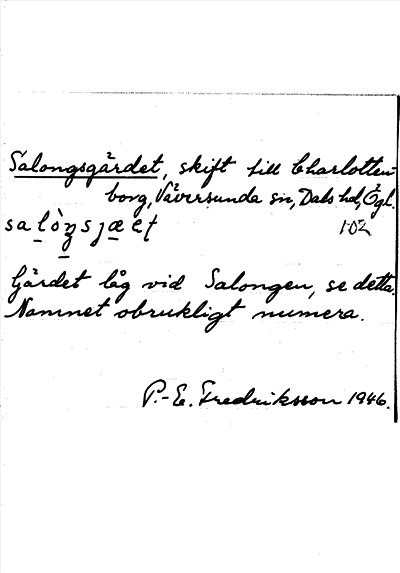 Salongsgärdet, skift till Charlotten-
borg, Väversunda sn, Dals hd, Ögl.
102
Gärdet låg vid Salongen, se detta.
Namnet obrukligt numera.
P.-E. Fredriksson 1946.